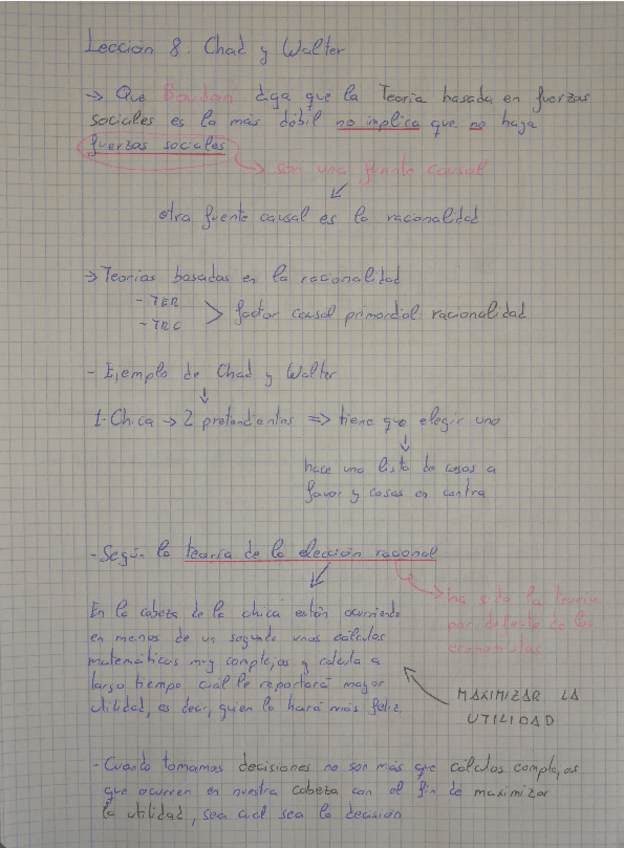 Lección 8. Chad y Walter
→ Que Boudon diga que la Teoría basada en fuerzas
sociales es la más débil no implica que no haya
fuerzas sociales
→ son una fuente causal
otra fuente causal es la racionalidad
→ Teorías basadas en la racionalidad
- TER
- TRC > factor causal primordial: racionalidad
- Ejemplo de Chad y Walter
1 Chica → 2 pretendientes => tiene que elegir uno
hace una lista de cosas a
favor y cosas en contra
- Según la teoría de la elección racional
ha sido la teoría
por defecto de los
economistas
En la cabeza de la chica están ocurriendo
en menos de un segundo unos cálculos
matemáticos muy complejos y calcula a
largo tiempo cuál le reportará mayor
utilidad, es decir, quien la hará más feliz.
MAXIMIZAR LA
UTILIDAD
- Cuando tomamos decisiones no son más que cálculos complejos
que ocurren en nuestra cabeza con el fin de maximizar
la utilidad, sea cual sea la decisión